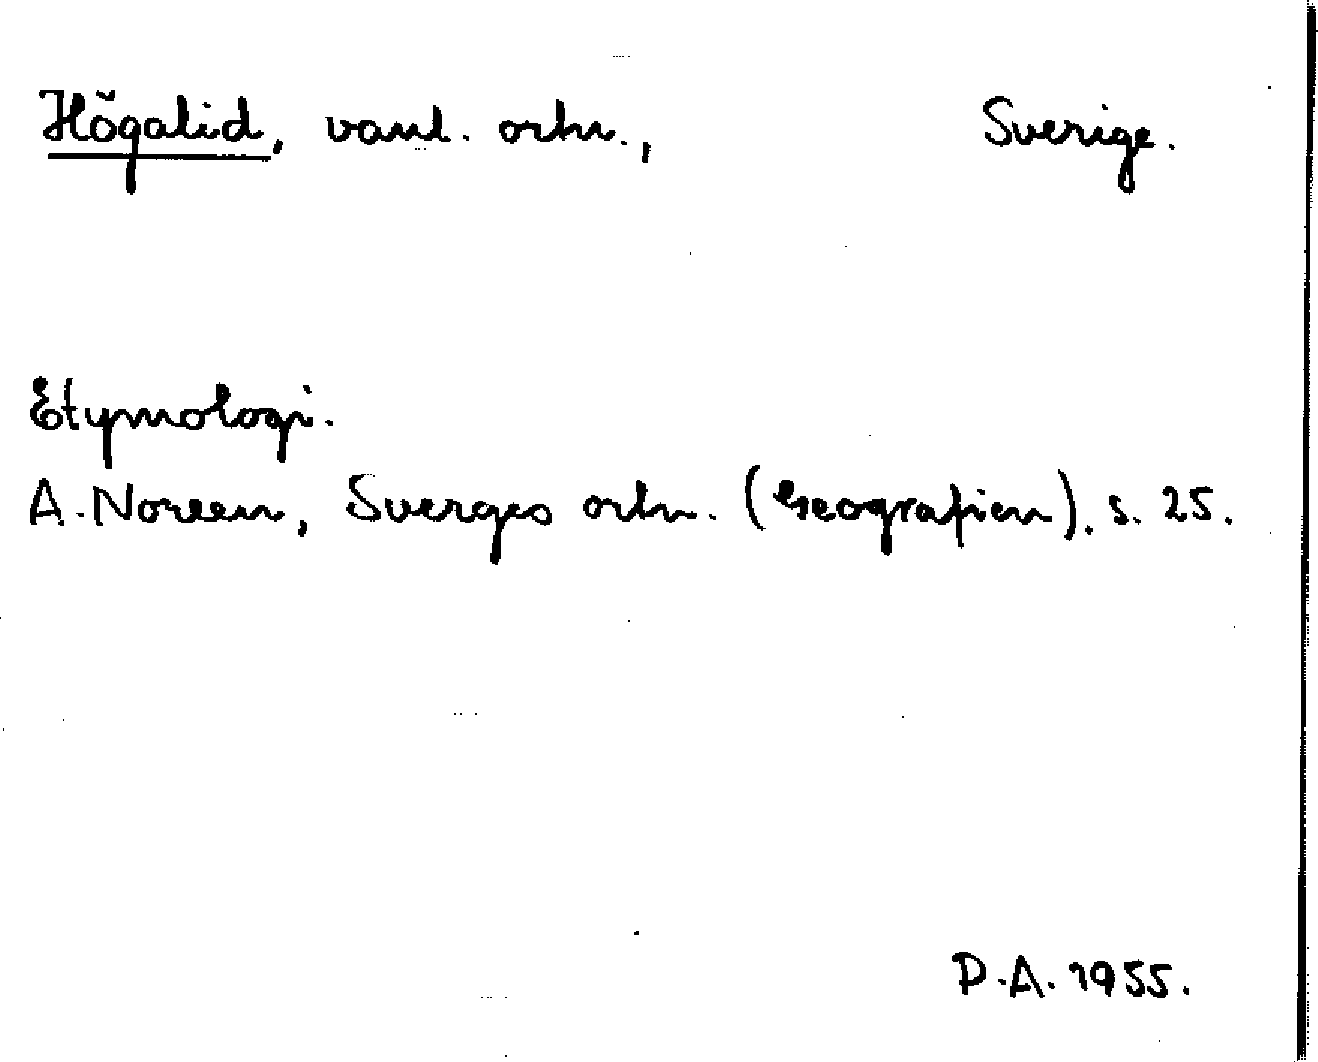 Högalid, vanl. ortn., Sverige.
Etymologi.
A. Noreen, Sverges ortn. (Geografien). s. 25.
P.A. 1955.